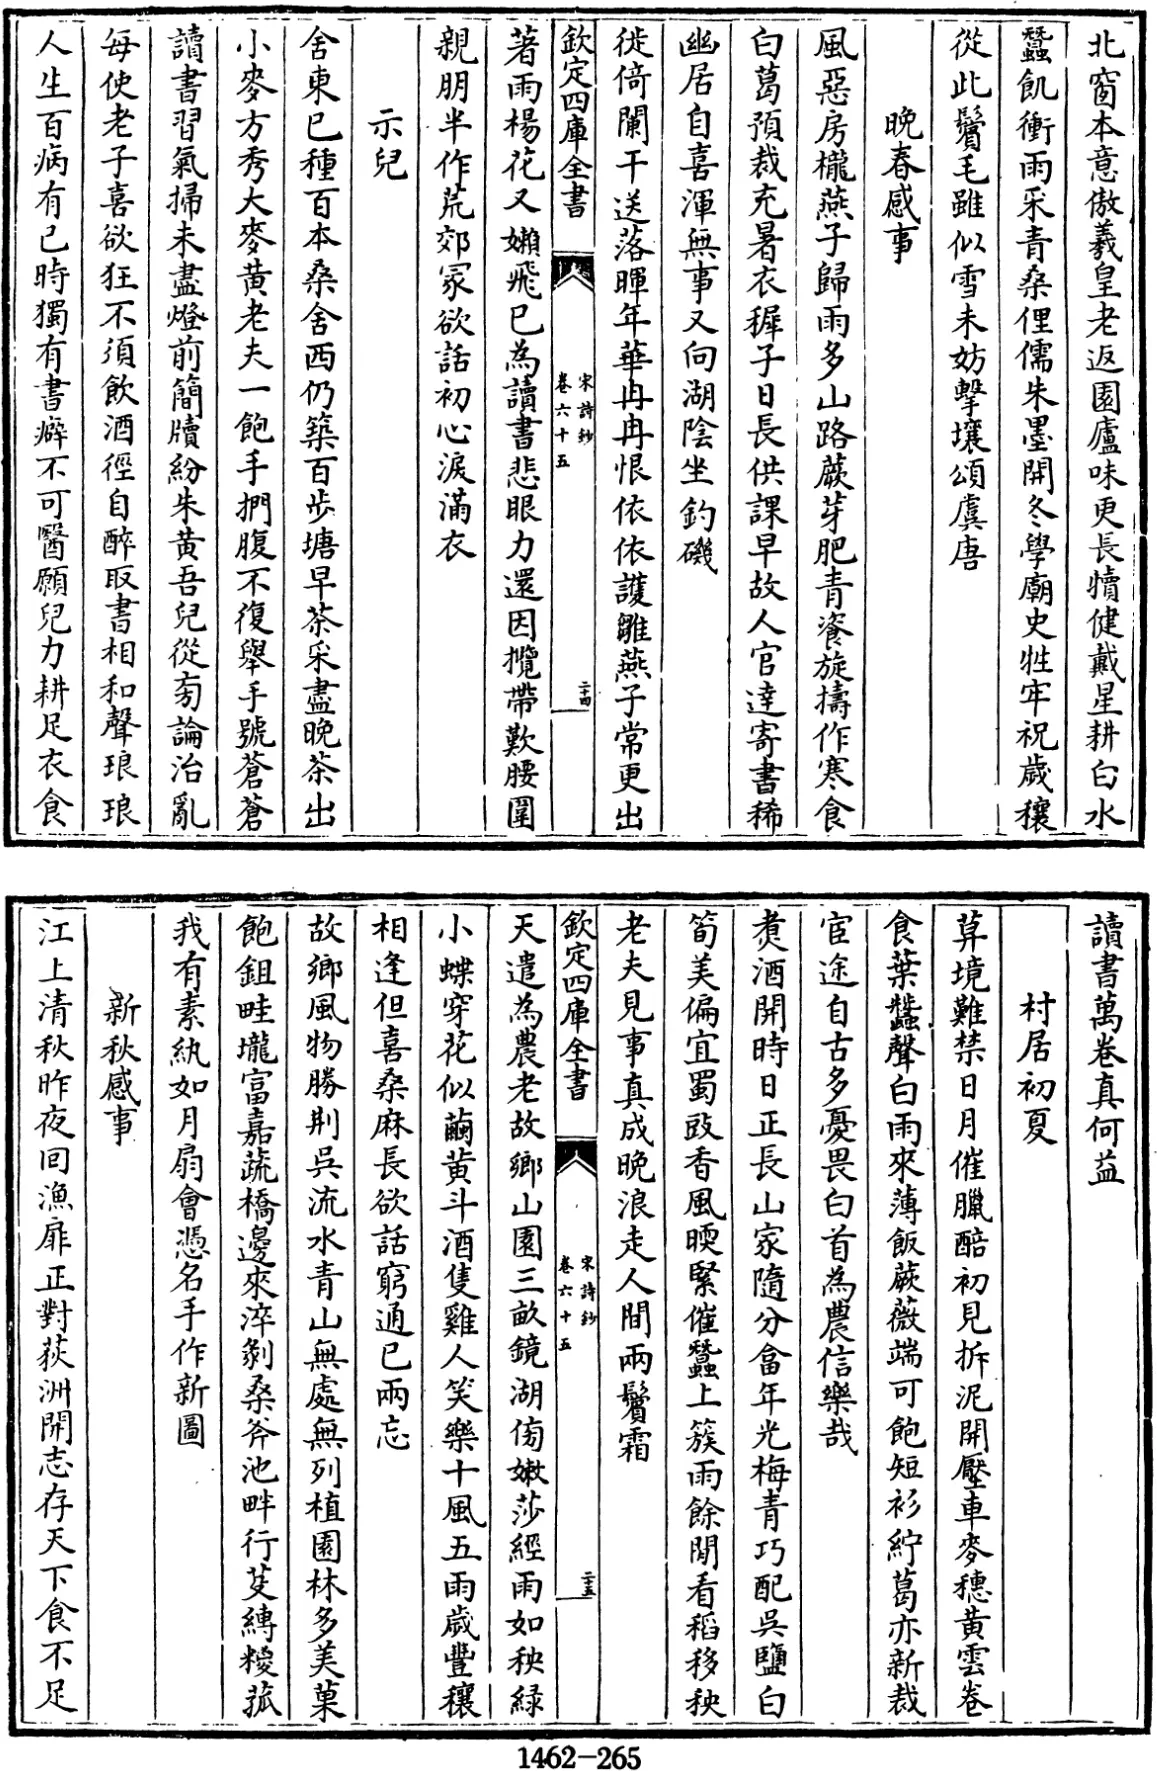 北窗本意傲羲皇老返園廬味更長犢健戴星耕白水
蠶飢衝雨采青桑俚儒朱墨開冬學廟史牲牢祝歲穰
從此鬢毛雖似雪未妨擊壤頌虞唐
晚春感事
風惡房櫳燕子歸雨多山路蕨芽肥青資旋擣作寒食
白葛預裁充暑衣穉子日長供課早故人官達寄書稀
幽居自喜渾無事又向湖陰坐釣磯
徙倚闌干送落暉年華冉冉恨依依護雛燕子常更出
欽定四庫全書
宋詩鈔
卷六十五
二十四
著雨楊花又嬾飛已為讀書悲眼力還因攬帶歎腰圍
親朋半作荒郊冢欲話初心淚滿衣
示兒
舍東已種百本桑舍西仍築百步塘早茶采盡晚茶出
小麥方秀大麥黃老夫一飽手捫腹不復舉手號蒼蒼
讀書習氣掃未盡燈前簡牘紛朱黃吾兒從旁論治亂
每使老子喜欲狂不須飲酒徑自醉取書相和聲琅琅
人生百病有已時獨有書癖不可醫願兒力耕足衣食
讀書萬卷真何益
村居初夏
莫境難禁日月催臘醅初見拆泥開壓車麥穗黃雲卷
食葉蠶聲白雨來薄飯蕨薇端可飽短衫紵葛亦新裁
宦途自古多憂畏白首為農信樂哉
煑酒開時日正長山家隨分畣年光梅青巧配吳鹽白
筍美偏宜蜀豉香風暖緊催蠶上簇雨餘閒看稻移秧
老夫見事真成晚浪走人間兩鬢霜
欽定四庫全書
宋詩鈔
卷六十五
二十五
天遣為農老故鄉山園三畝鏡湖傍嫩莎經雨如秧緑
小蝶穿花似繭黃斗酒隻雞人笑樂十風五雨歲豐穰
相逢但喜桑麻長欲話窮通已兩忘
故鄉風物勝荆吳流水青山無處無列植園林多美菓
飽鉏畦壠富嘉蔬橋邊來淬剝桑斧池畔行芟縛糉菰
我有素紈如月扇會憑名手作新圖
新秋感事
江上清秋昨夜回漁扉正對荻洲開志存天下食不足
1462-265